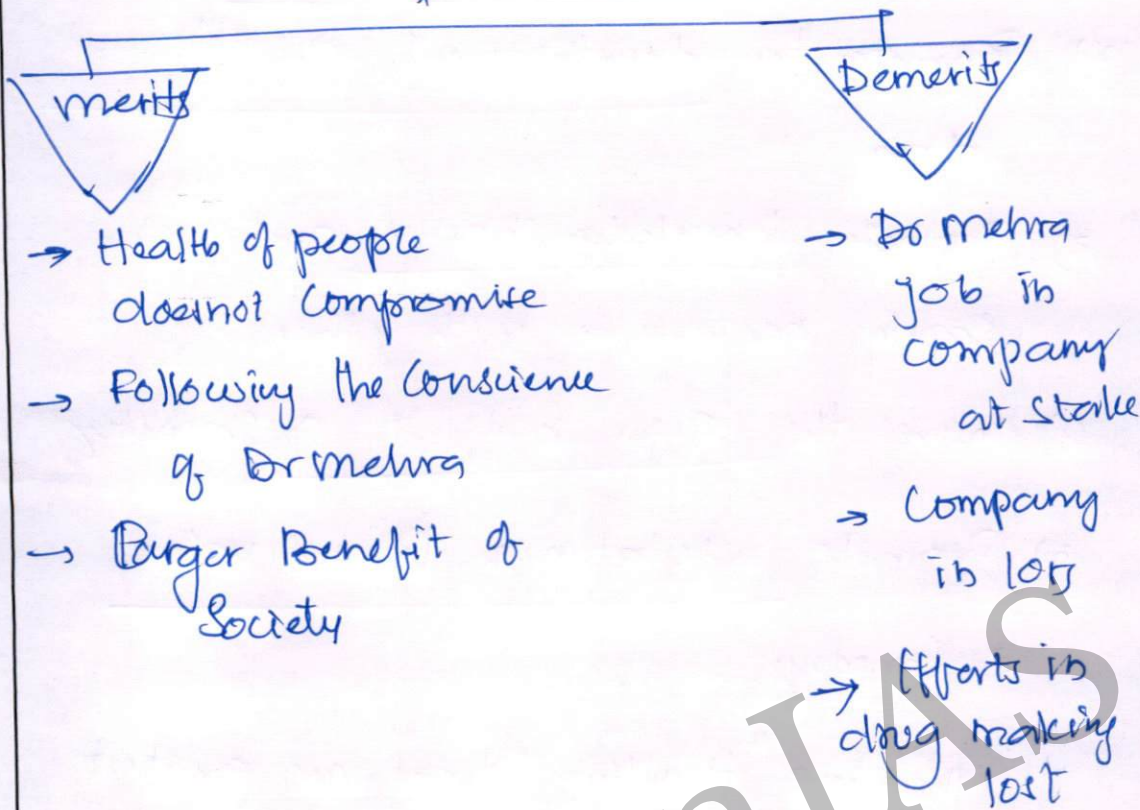 merits
→ Health of people
doesnot Compromise
→ Following the Conscience
of Dr mehra
→ Larger Benefit of
Society
Demerits
→ Dr mehra
job in
company
at stake
→ Company
in loss
→ Efforts in
drug making
lost
IAS